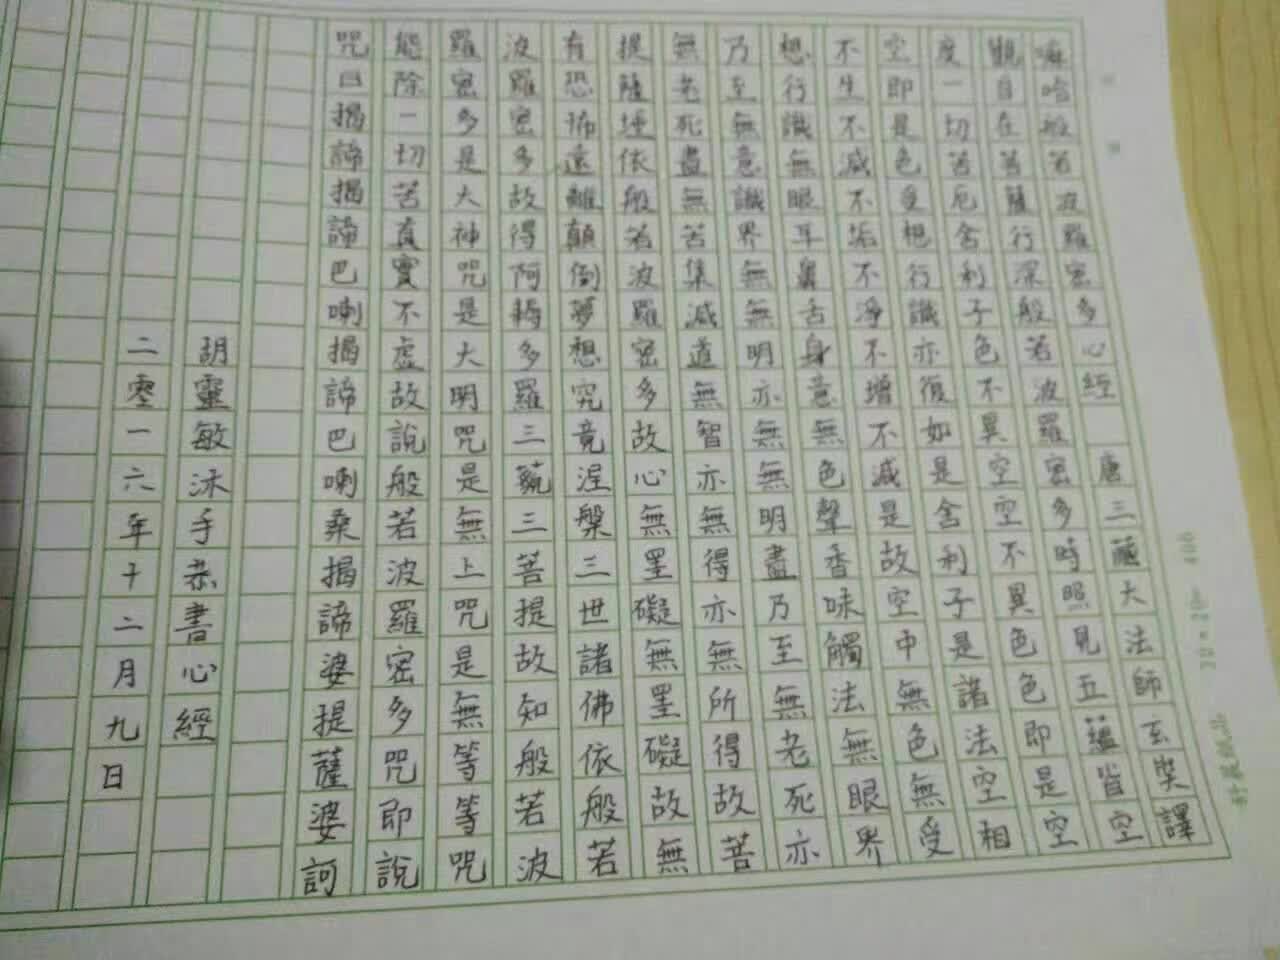 嘛哈般若波羅密多心經 唐三藏大法師玄奘譯
觀自在菩薩行深般若波羅密多時照見五蘊皆空
度一切苦厄舍利子色不異空空不異色色即是空
空即是色受想行識亦復如是舍利子是諸法空相
不生不滅不垢不淨不增不減是故空中無色無受
想行識無眼耳鼻舌身意無色聲香味觸法無眼界
乃至無意識界無無明亦無無明盡乃至無老死亦
無老死盡無苦集滅道無智亦無得亦無所得故菩
提薩埵依般若波羅密多故心無罣礙無罣礙故無
有恐怖遠離顛倒夢想究竟涅槃三世諸佛依般若
波羅密多故得阿耨多羅三藐三菩提故知般若波
羅密多是大神咒是大明咒是無上咒是無等等咒
能除一切苦真實不虛故說般若波羅密多咒即說
咒曰揭諦揭諦巴喇揭諦巴喇桑揭諦婆提薩婆訶
胡靈敏沐手恭書心經
二零一六年十二月九日
20×20=400